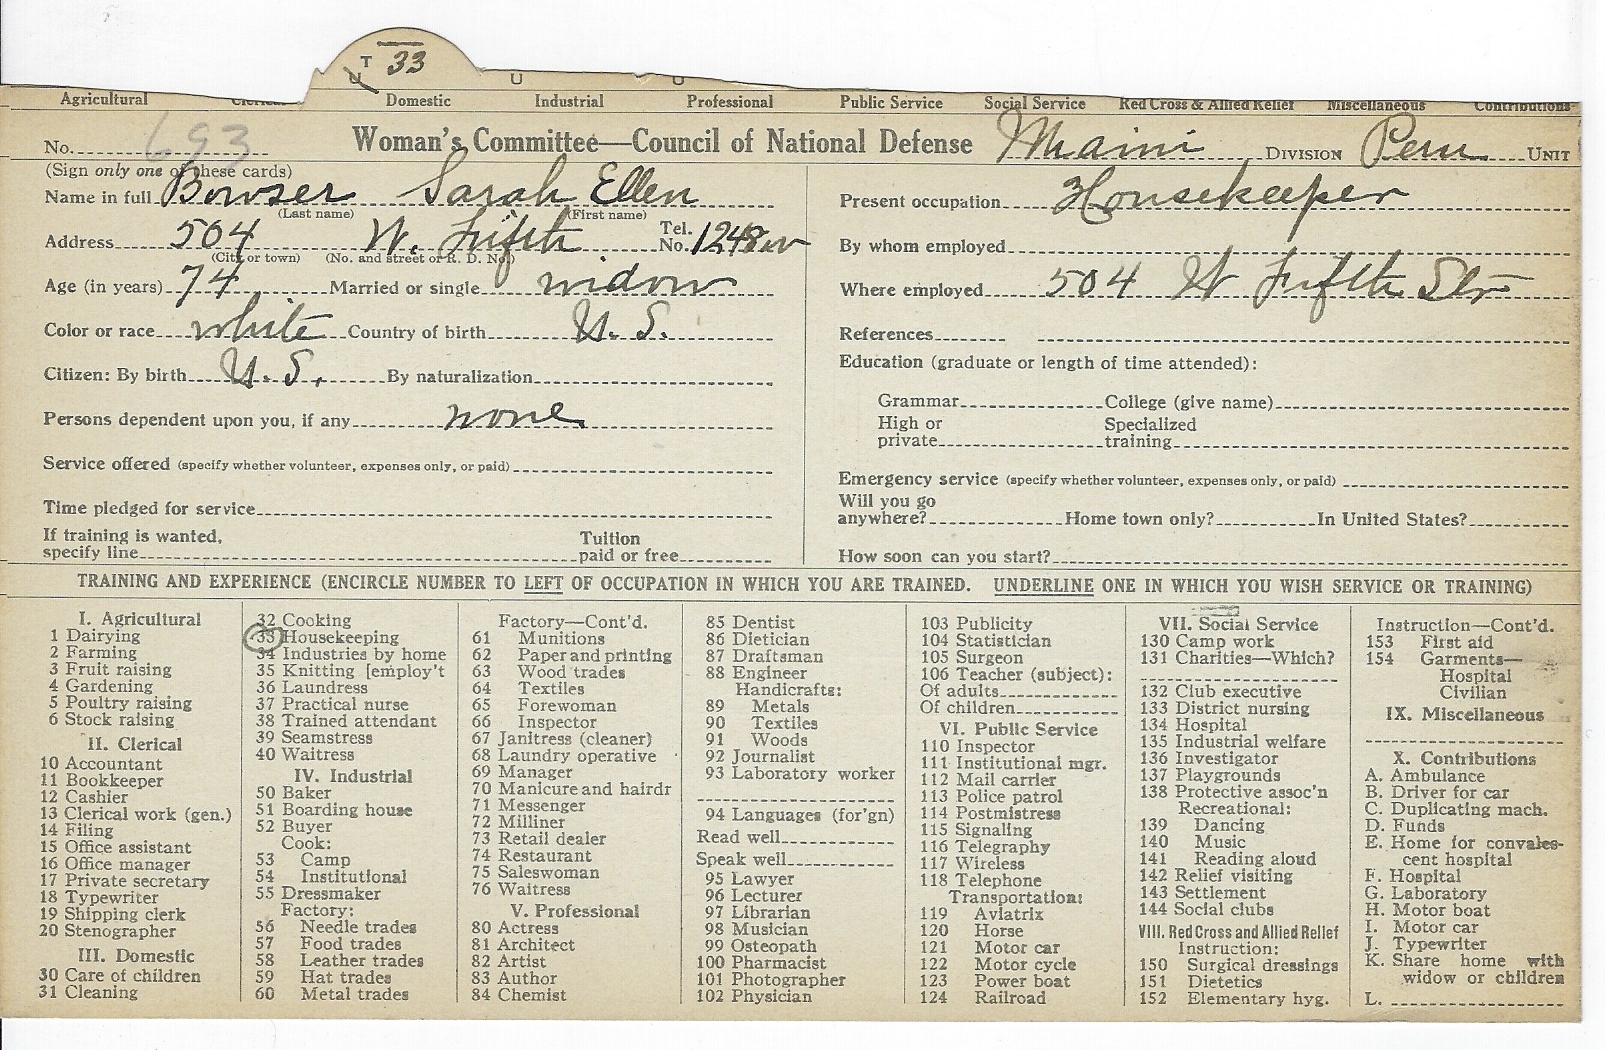 T 33
U U U
Agricultural Clerical Domestic Industrial Professional Public Service Social Service Red Cross & Allied Relief Miscellaneous Contributions
No. 693 Woman's Committee—Council of National Defense Miami DIVISION Peru UNIT
(Sign only one of these cards)
Name in full Bowser Sarah Ellen
(Last name) (First name)
Address 504 W. Fifth Tel. No. 1248w
(City or town) (No. and street or R. D. No.)
Age (in years) 74 Married or single widow
Color or race white Country of birth U. S.
Citizen: By birth U. S. By naturalization
Persons dependent upon you, if any none
Service offered (specify whether volunteer, expenses only, or paid)
Time pledged for service
If training is wanted, specify line Tuition paid or free
Present occupation Housekeeper
By whom employed
Where employed 504 W Fifth Str
References
Education (graduate or length of time attended):
Grammar College (give name)
High or private Specialized training
Emergency service (specify whether volunteer, expenses only, or paid)
Will you go anywhere? Home town only? In United States?
How soon can you start?
TRAINING AND EXPERIENCE (ENCIRCLE NUMBER TO LEFT OF OCCUPATION IN WHICH YOU ARE TRAINED. UNDERLINE ONE IN WHICH YOU WISH SERVICE OR TRAINING)
I. Agricultural
1 Dairying
2 Farming
3 Fruit raising
4 Gardening
5 Poultry raising
6 Stock raising
II. Clerical
10 Accountant
11 Bookkeeper
12 Cashier
13 Clerical work (gen.)
14 Filing
15 Office assistant
16 Office manager
17 Private secretary
18 Typewriter
19 Shipping clerk
20 Stenographer
III. Domestic
30 Care of children
31 Cleaning
32 Cooking
33 Housekeeping
34 Industries by home
35 Knitting [employ't
36 Laundress
37 Practical nurse
38 Trained attendant
39 Seamstress
40 Waitress
IV. Industrial
50 Baker
51 Boarding house
52 Buyer
Cook:
53 Camp
54 Institutional
55 Dressmaker
Factory:
56 Needle trades
57 Food trades
58 Leather trades
59 Hat trades
60 Metal trades
Factory—Cont'd.
61 Munitions
62 Paper and printing
63 Wood trades
64 Textiles
65 Forewoman
66 Inspector
67 Janitress (cleaner)
68 Laundry operative
69 Manager
70 Manicure and hairdr
71 Messenger
72 Milliner
73 Retail dealer
74 Restaurant
75 Saleswoman
76 Waitress
V. Professional
80 Actress
81 Architect
82 Artist
83 Author
84 Chemist
85 Dentist
86 Dietician
87 Draftsman
88 Engineer
Handicrafts:
89 Metals
90 Textiles
91 Woods
92 Journalist
93 Laboratory worker
94 Languages (for'gn)
Read well
Speak well
95 Lawyer
96 Lecturer
97 Librarian
98 Musician
99 Osteopath
100 Pharmacist
101 Photographer
102 Physician
103 Publicity
104 Statistician
105 Surgeon
106 Teacher (subject):
Of adults
Of children
VI. Public Service
110 Inspector
111 Institutional mgr.
112 Mail carrier
113 Police patrol
114 Postmistress
115 Signaling
116 Telegraphy
117 Wireless
118 Telephone
Transportation:
119 Aviatrix
120 Horse
121 Motor car
122 Motor cycle
123 Power boat
124 Railroad
VII. Social Service
130 Camp work
131 Charities—Which?
132 Club executive
133 District nursing
134 Hospital
135 Industrial welfare
136 Investigator
137 Playgrounds
138 Protective assoc'n
Recreational:
139 Dancing
140 Music
141 Reading aloud
142 Relief visiting
143 Settlement
144 Social clubs
VIII. Red Cross and Allied Relief
Instruction:
150 Surgical dressings
151 Dietetics
152 Elementary hyg.
Instruction—Cont'd.
153 First aid
154 Garments—
Hospital
Civilian
IX. Miscellaneous
X. Contributions
A. Ambulance
B. Driver for car
C. Duplicating mach.
D. Funds
E. Home for convales-
cent hospital
F. Hospital
G. Laboratory
H. Motor boat
I. Motor car
J. Typewriter
K. Share home with
widow or children
L.